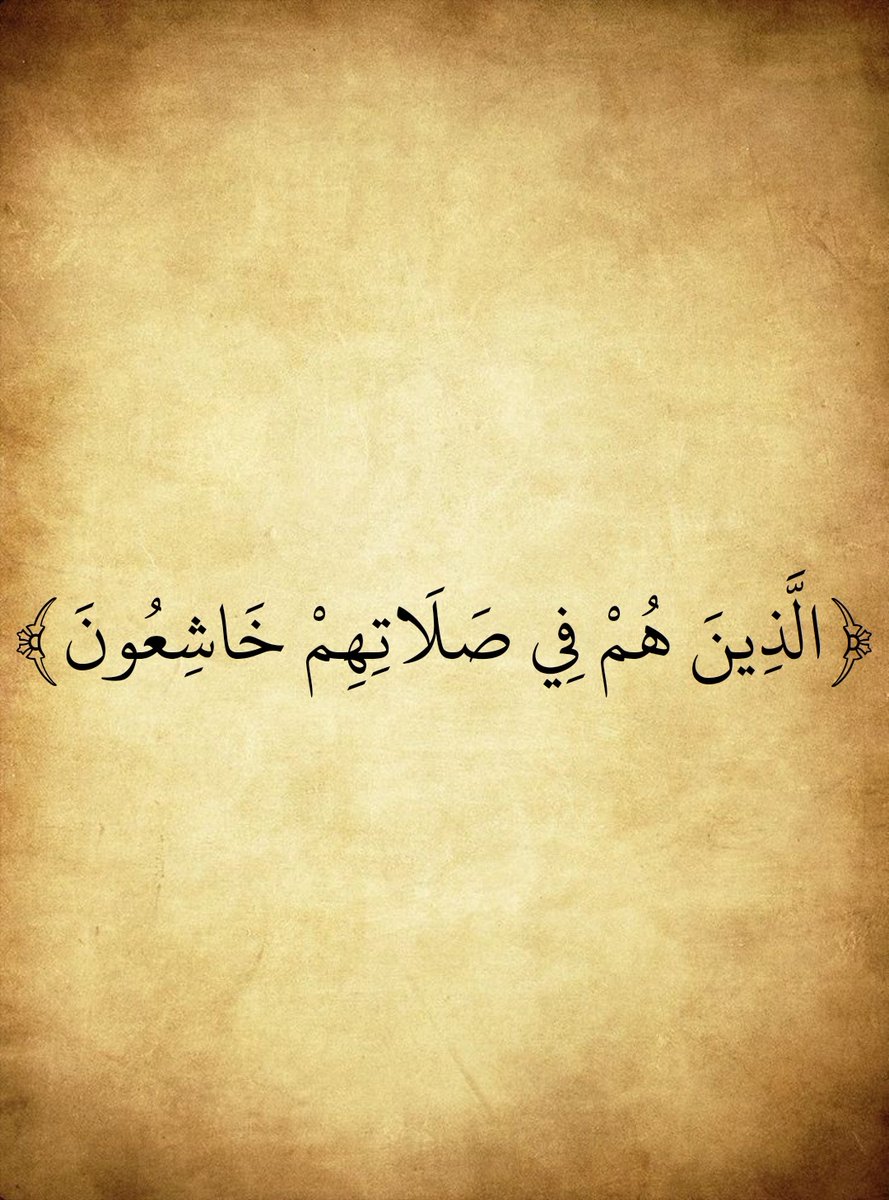 ﴿الَّذِينَ هُمْ فِي صَلَاتِهِمْ خَاشِعُونَ﴾